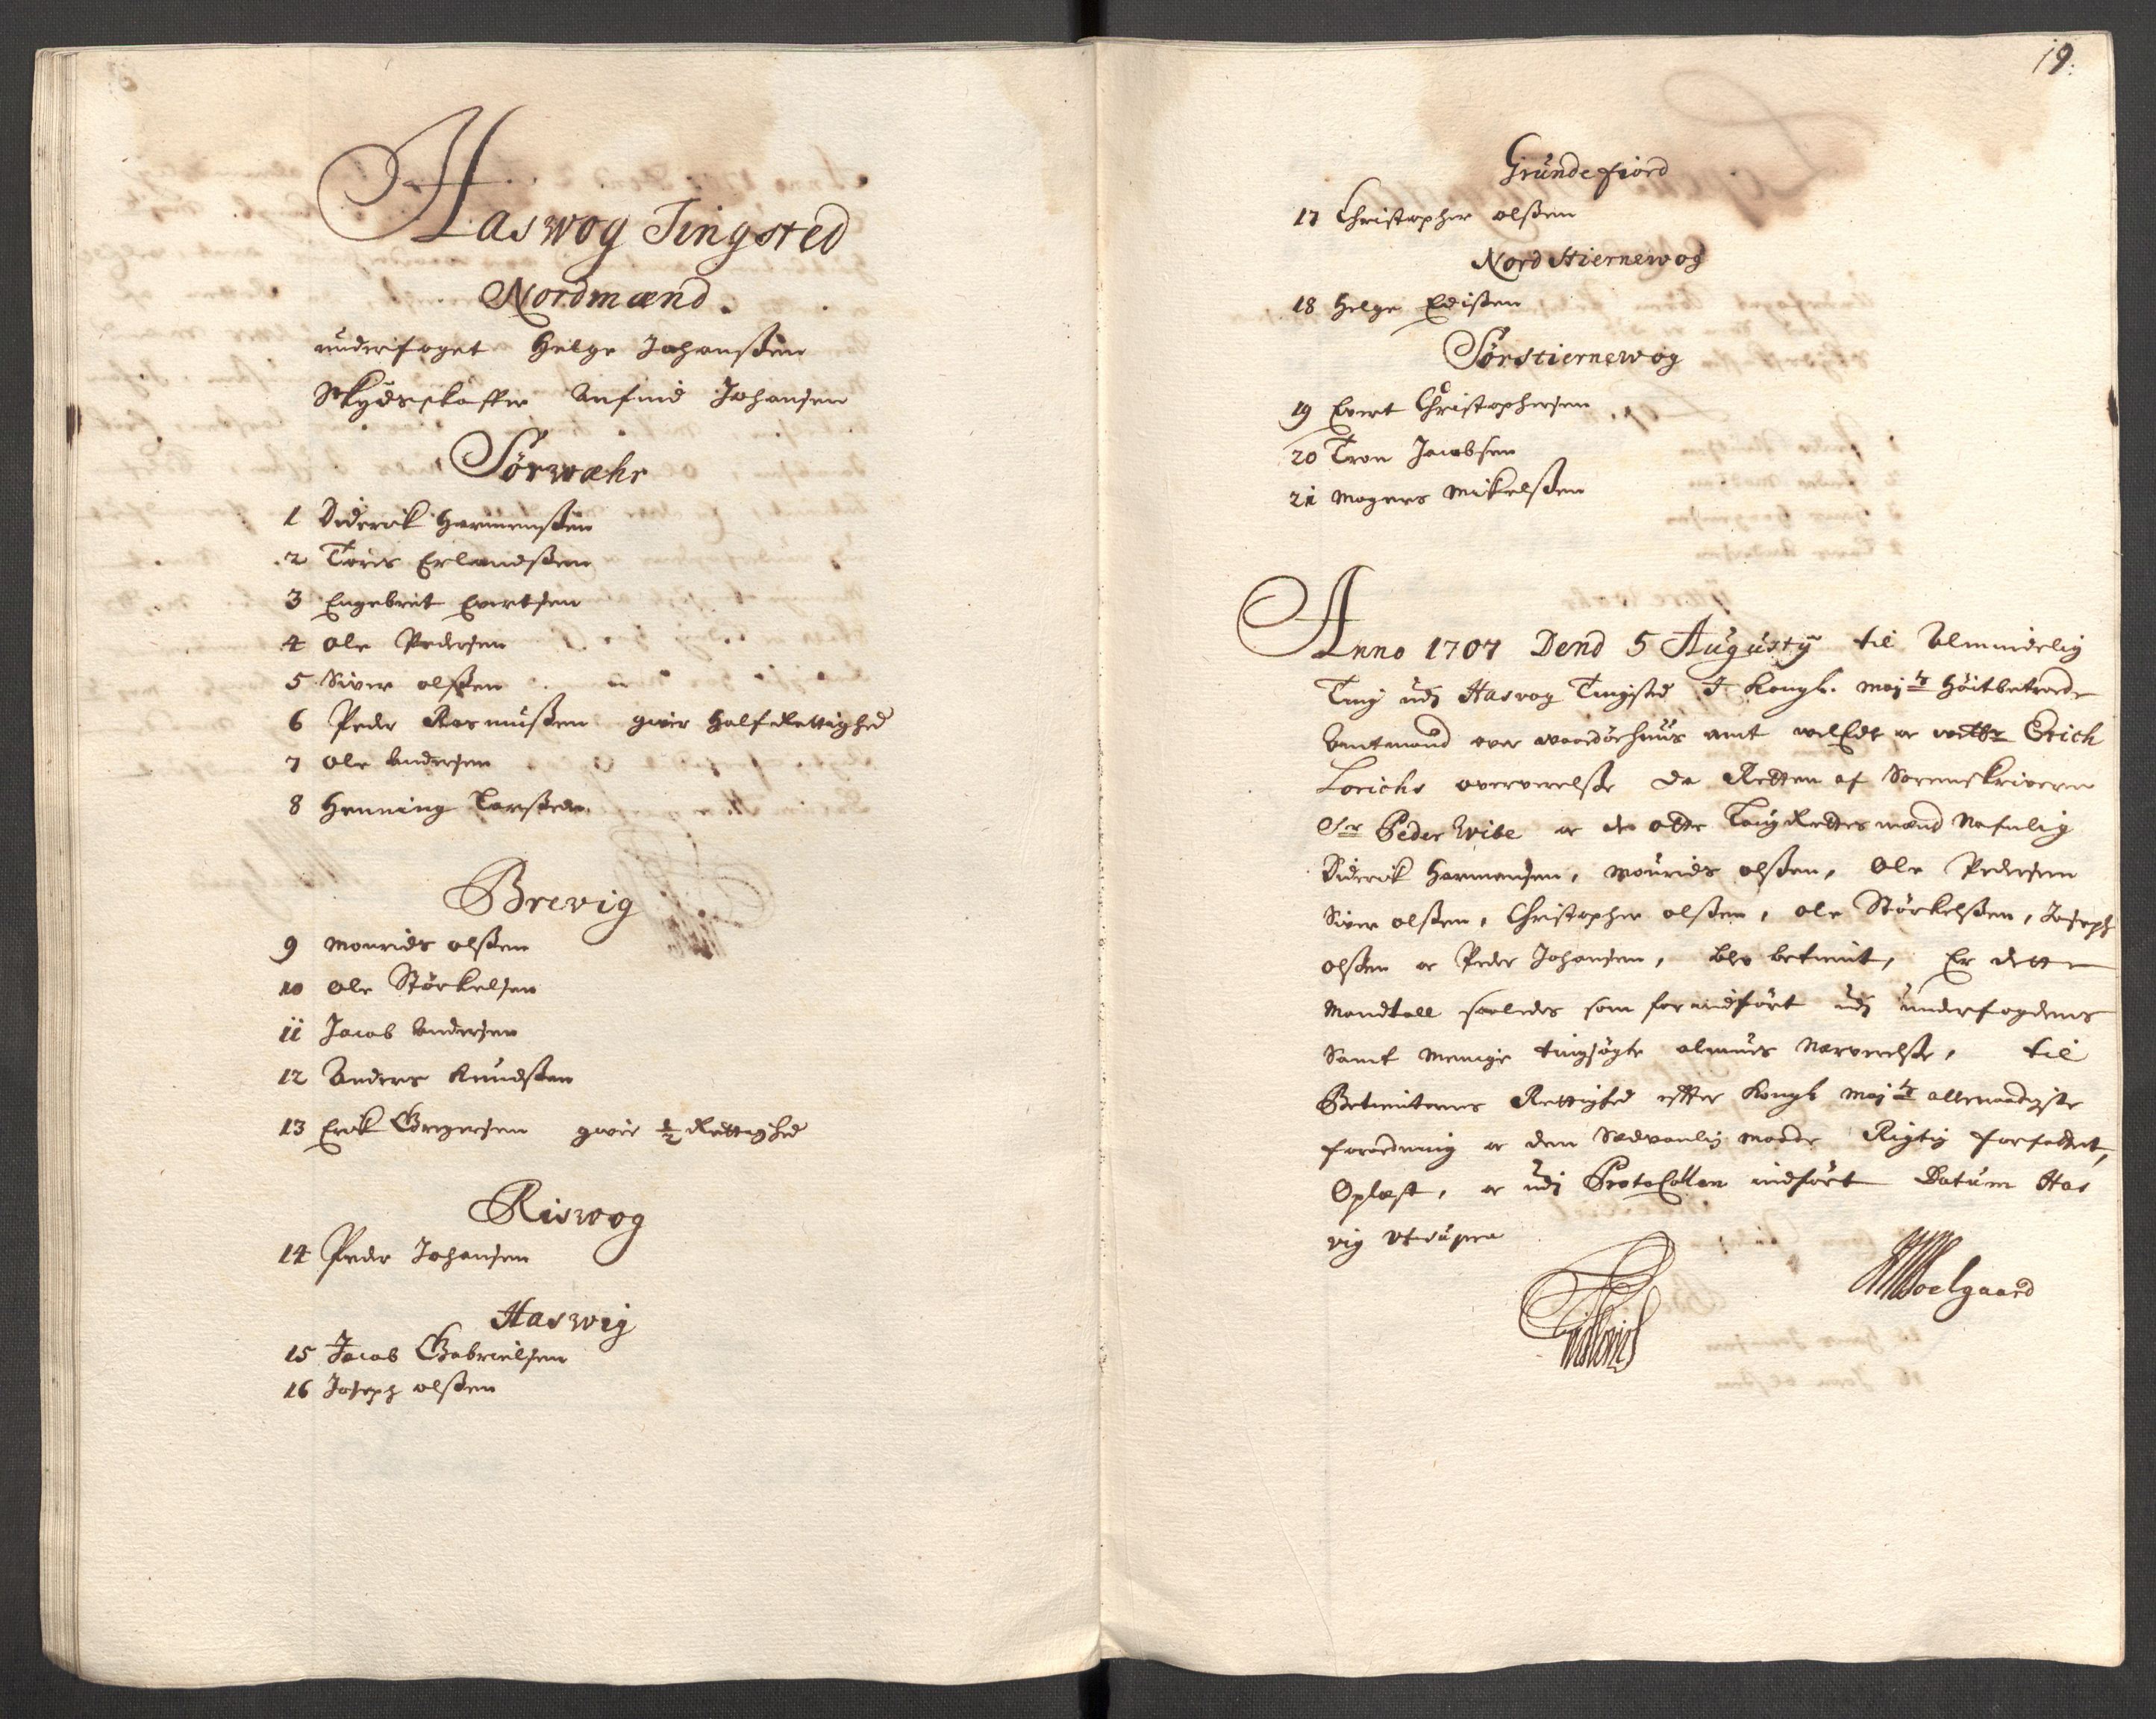 Haswog Tingsted
Nordmænd.
underfoget Helge Johanßen
Skydsskaffer Anfind Johansen
Sørwæhr
1 Diderik Harmenßen
2 Toris Erlandßen
3 Engebret Evertsen
4 Ole Pedersen
5 Siver olßen
6 Peder Rasmußen giver Half Rettighed
7 Ole Andersen
8 Henning Larßen
Brevig
9 Mourids olßen
10 Ole Størkelsen
11 Jacob Andersen
12 Anders Knudßen
13 Erik Gregersen giver ½ Rettighed
Riswog
14 Peder Johansen
Haswig
15 Jacob Gabrielsen
16 Joseph olßen
19.
Grundefiord
17 Christopher olßen
Nord Stiernewog
18 Helge Edißen
Sørstiernewog
19 Evert Christophersen
20 Tron Jacobsen
21 Mogens Mikelßen
Anno 1707 Dend 5 Augusty til Almindelig
Ting udj Hasvog Tingsted I Kongl. May:ts Høitbetroede
Amtmand over Wardøehuus amt welEdle og Erich
Lorichs oververelße da Retten af Sorenskriveren
Sr Peder Wibe og de otte LaugRettesmænd Nafnlig
Diderik Harmensen, Mourids olßen, Ole Pedersen
Siver olßen, Christopher olßen, ole Størkelßen, Joseph
olßen og Peder Johansen, blev betient, Er dette
Mandtall saaledes som for indført udj underfogdens
Samt Menige tingsøgte almues Nærverelße, til
Betienternes Rettighed efter Kongl May:ts allernaadigste
forordning og den Sædvanlig Maade Rigtig forfattet,
Oplæst, og udj Protocollen indført Datum Has
vig Utsupra
Erich Lorichs
Soelgaard